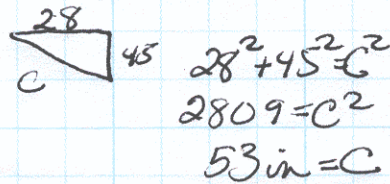 28
45
C
28²+45²=C²
2809=C²
53in=C